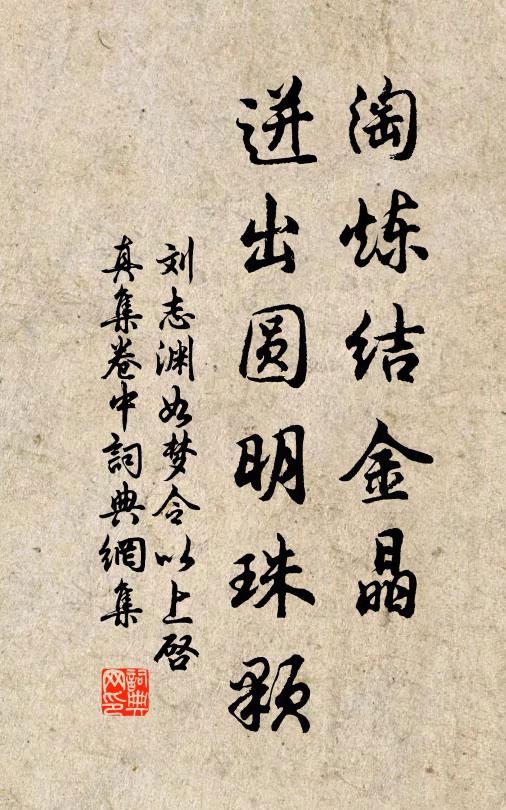 淘炼结金晶
迸出圆明珠颗
刘志渊如梦令以上启
真集卷中詞典網集
詞典网印